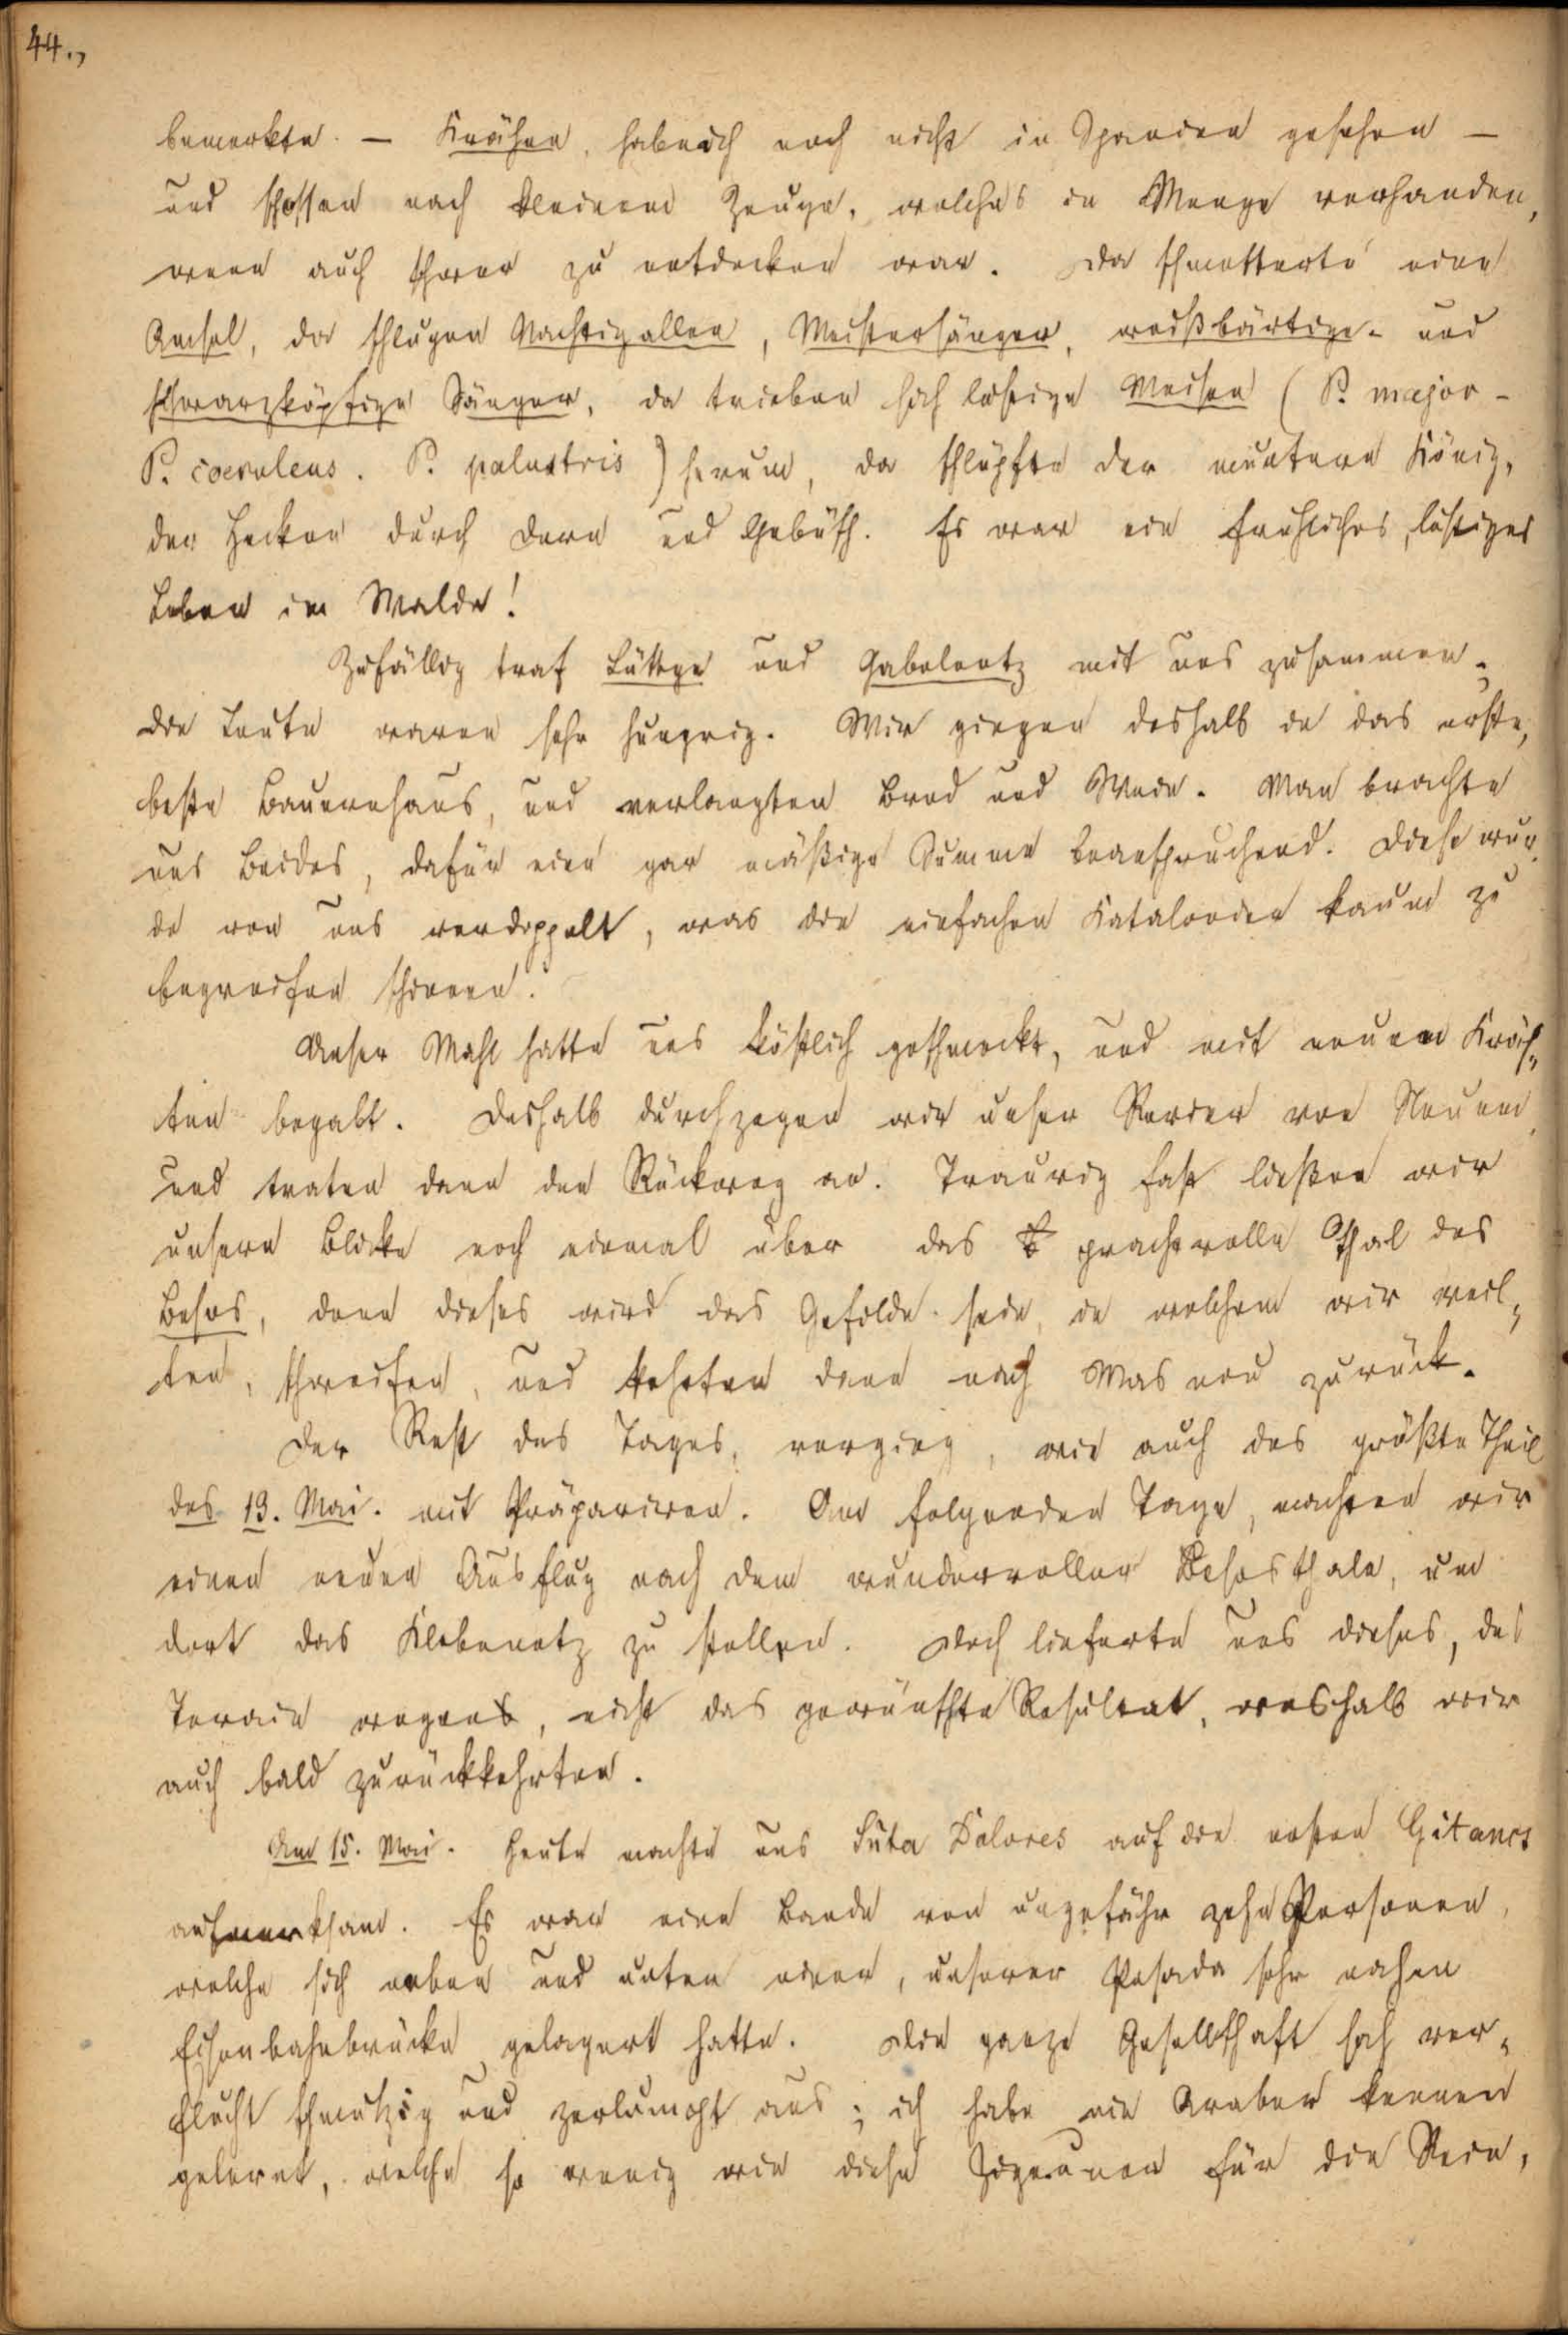 44.,
bemerkte. — Krähen, habe ich noch nicht in Spanien gesehen —
und schossen nach kleinem Zeuge, welches in Menge vorhanden,
wenn auch schwer zu entdecken war. Da schmetterte eine
Amsel, da schlugen Nachtigallen, Meistersänger, weißbärtige- und
schwarzköpfige Sänger, da trieben sich lustige Meisen (P. major -
P. coeruleus. P. palustris) herum, da schlüpfte der muntere König,
der Hecken durch Dorn und Gebüsch. Es war ein fröhliches, lustiges
Leben im Walde!
Zufällig traf Lüttge und Gabelentz mit uns zusammen;
die Leute waren sehr hungrig. Wir gingen deshalb in das erste,
beste Bauernhaus, und verlangten Brod und Wein. Man brachte
uns Beides, dafür eine gar mäßige Summe beanspruchend. Diese wur-
de von uns verdoppelt, was die einfachen Katalonier kaum zu
begreifen schienen.
Unser Mahl hatte uns köstlich geschmeckt, und mit neuen Kräf-
ten begabt. Deshalb durchzogen wir unser Revier von Neuem
und traten dann den Rückweg an. Traurig fast ließen wir
unsere Blicke noch einmal über das prachtvolle Thal des
Besos, denn dieses wird das Gefilde sein, in welchem wir weil-
ten, schweifen, und kehrten dann nach Masnou zurück.
Der Rest des Tages, verging, wie auch der größte Theil
des 13. Mai. mit Präpariren. Am folgenden Tage, machten wir
einen neuen Ausflug nach dem wundervollen Besosthale, um
dort das Klebenetz zu stellen. Doch lieferte uns dieses, des
Terrain wegens, nicht das gewünschte Resultat, weshalb wir
auch bald zurückkehrten.
Am 15. Mai. Heute machte uns Sñta Dolores auf die ersten Gitanos
aufmerksam. Es war eine Bande von ungefähr zehn Personen,
welche sich neben und unter einer, unserer Posada sehr nahen
Eisenbahnbrücke gelagert hatte. Die ganze Gesellschaft sah ver-
flucht schmutzig und zerlumpt aus; ich habe nie Araber kennen
gelernt, welche so wenig wie diese Zigeuner für die Rein,